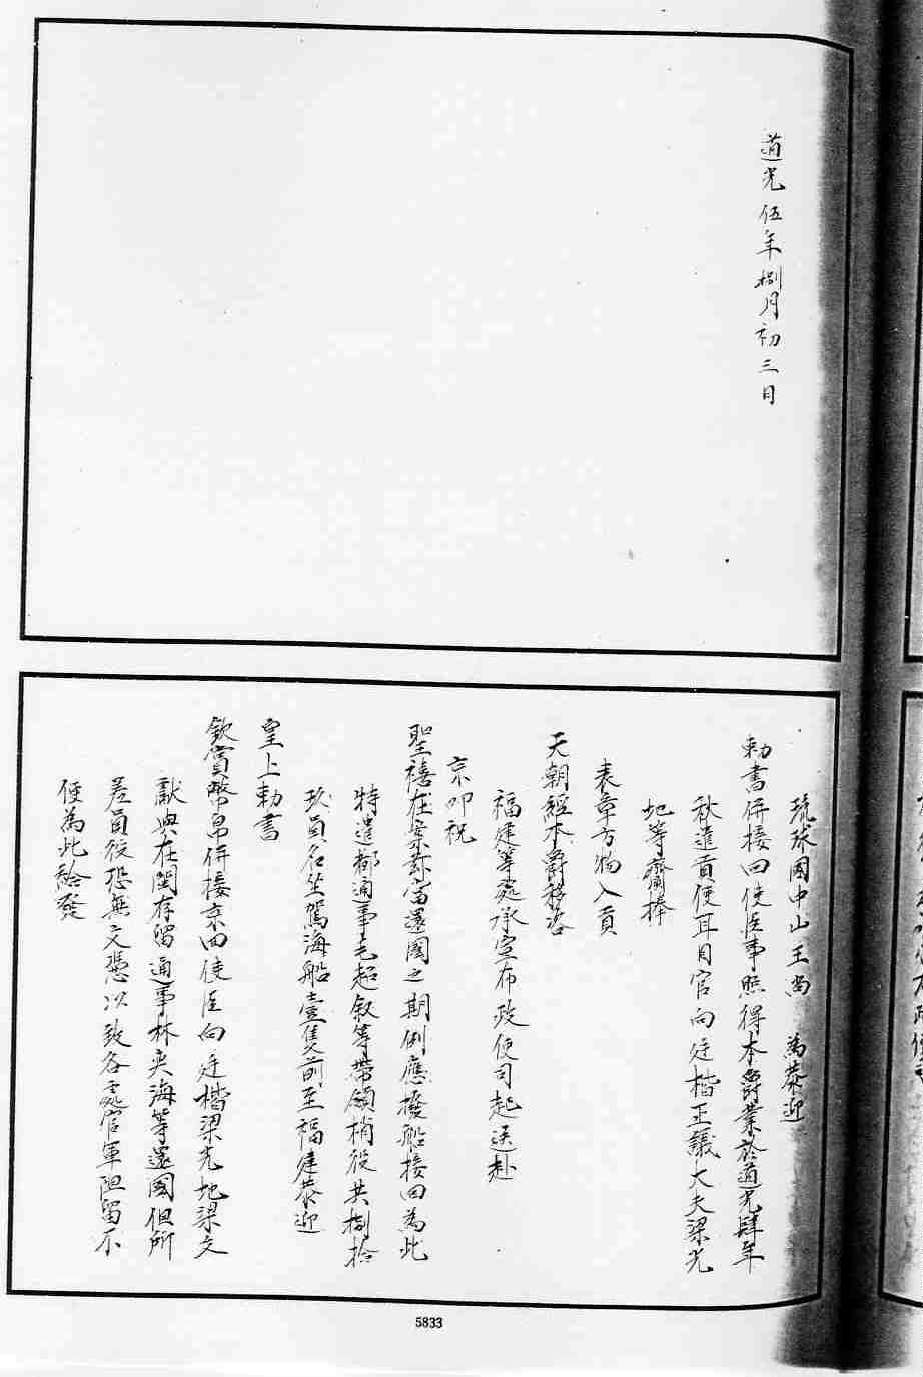 道光伍年捌月初三日
琉球國中山王尚　為恭迎
勅書併接回使臣事照得本爵業於道光肆年
秋遣貢使耳目官向廷楷正議大夫梁光
地等齎捧
表章方物入貢
天朝經本爵移咨
福建等處承宣布政使司起送赴
京叩祝
聖禧在案茲當還國之期例應撥船接回為此
特遣都通事毛超叙等帶領梢役共捌拾
玖員名坐駕海船壹隻前至福建恭迎
皇上勅書
欽賞幣帛併接京回使臣向廷楷梁光地梁文
獻與在閩存留通事林奕海等還國但所
差員役恐無文憑以致各處官軍阻留不
便為此給發
5833